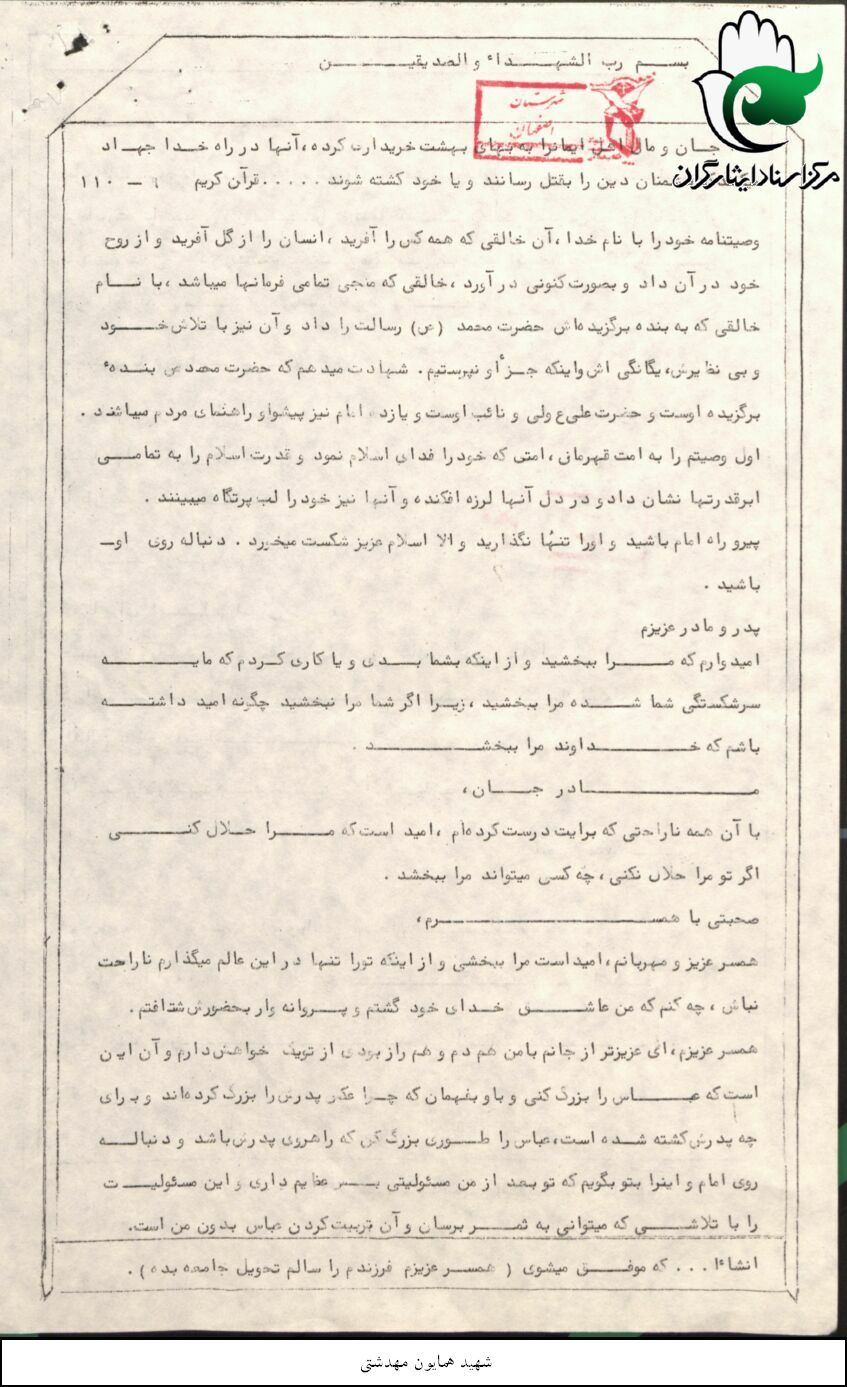 بسم رب الشهداء والصدیقین
شهرستان
اصفهان
مرکز اسناد ایثارگران
جان و مال اهل ایمانرا به بهای بهشت خریداری کرده،آنها در راه خدا جهاد
دشمنان دین را بقتل رسانند و یا خود کشته شوند .....قرآن کریم ۹ – ۱۱۰
وصیتنامه خود را با نام خدا،آن خالقی که همه کس را آفرید ،انسان را از گل آفرید و از روح
خود در آن داد و بصورت کنونی در آورد ،خالقی که منجی تمامی فرمانها میباشد ،با نام
خالقی که به بنده برگزیده‌اش حضرت محمد (ص) رسالت را داد و آن نیز با تلاش خود
و بی نظیرش،یگانگی اش واینکه جز او نپرستیم. شهادت میدهم که حضرت محمد ص بندهٔ
برگزیده اوست و حضرت علی ع ولی و نائب اوست و یازده امام نیز پیشوا و راهنمای مردم میباشند .
اول وصیتم را به امت قهرمان،امتی که خود را فدای اسلام نمود و قدرت اسلام را به تمامی
ابرقدرتها نشان داد و در دل آنها لرزه افکنده و آنها نیز خود را لب پرتگاه میبینند .
پیرو راه امام باشید و اورا تنها نگذارید و الا اسلام عزیز شکست میخورد . دنباله روی او
باشید .
پدر و مادر عزیزم
امیدوارم که مرا ببخشید و از اینکه بشما بدی و یا کاری کردم که مایه
سرشکستگی شما شده مرا ببخشید ،زیرا اگر شما مرا نبخشید چگونه امید داشته
باشم که خداوند مرا ببخشد .
مادر جان،
با آن همه ناراحتی که برایت درست کرده‌ام ،امید است که مرا حلال کنی
اگر تو مرا حلال نکنی ،چه کسی میتواند مرا ببخشد .
صحبتی با همسرم،
همسر عزیز و مهربانم،امید است مرا ببخشی و از اینکه تورا تنها در این عالم میگذارم ناراحت
نباش ،چه کنم که من عاشق خدای خود گشتم و پروانه وار بحضورش شتافتم.
همسر عزیزم،ای عزیزتر از جانم بامن هم دم و هم راز بودی از تو یک خواهش دارم و آن این
است که عباس را بزرگ کنی و باو بفهمان که چرا پدرش را بزرگ کرده‌اند و برای
چه پدرش کشته شده است،عباس را طوری بزرگ کن که راهروی پدرش باشد و دنباله
روی امام و اینرا بتو بگویم که تو بعد از من مسئولیتی بس عظیم داری و این مسئولیت
را با تلاشی که میتوانی به ثمر برسان و آن تربیت کردن عباس بدون من است.
انشاءا... که موفق میشوی ( همسر عزیزم فرزندم را سالم تحویل جامعه بده ) .
شهید همایون مهدشتی